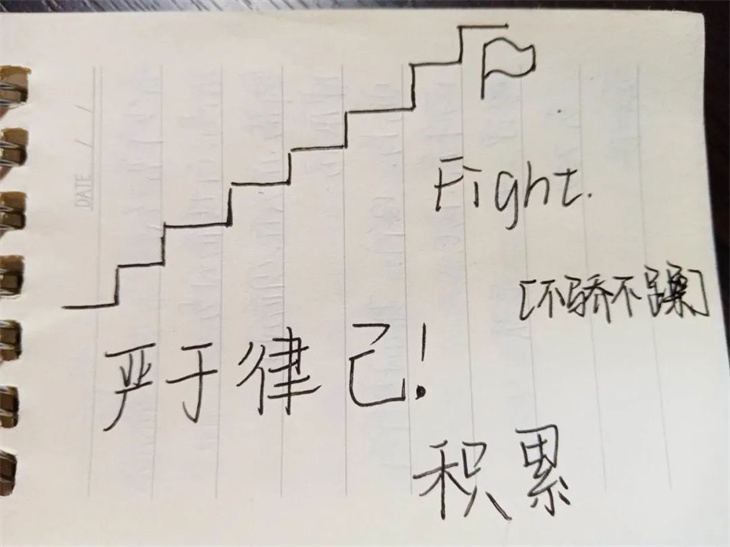 DATE / /
Fight.
[不骄不躁]
严于律己!
积累